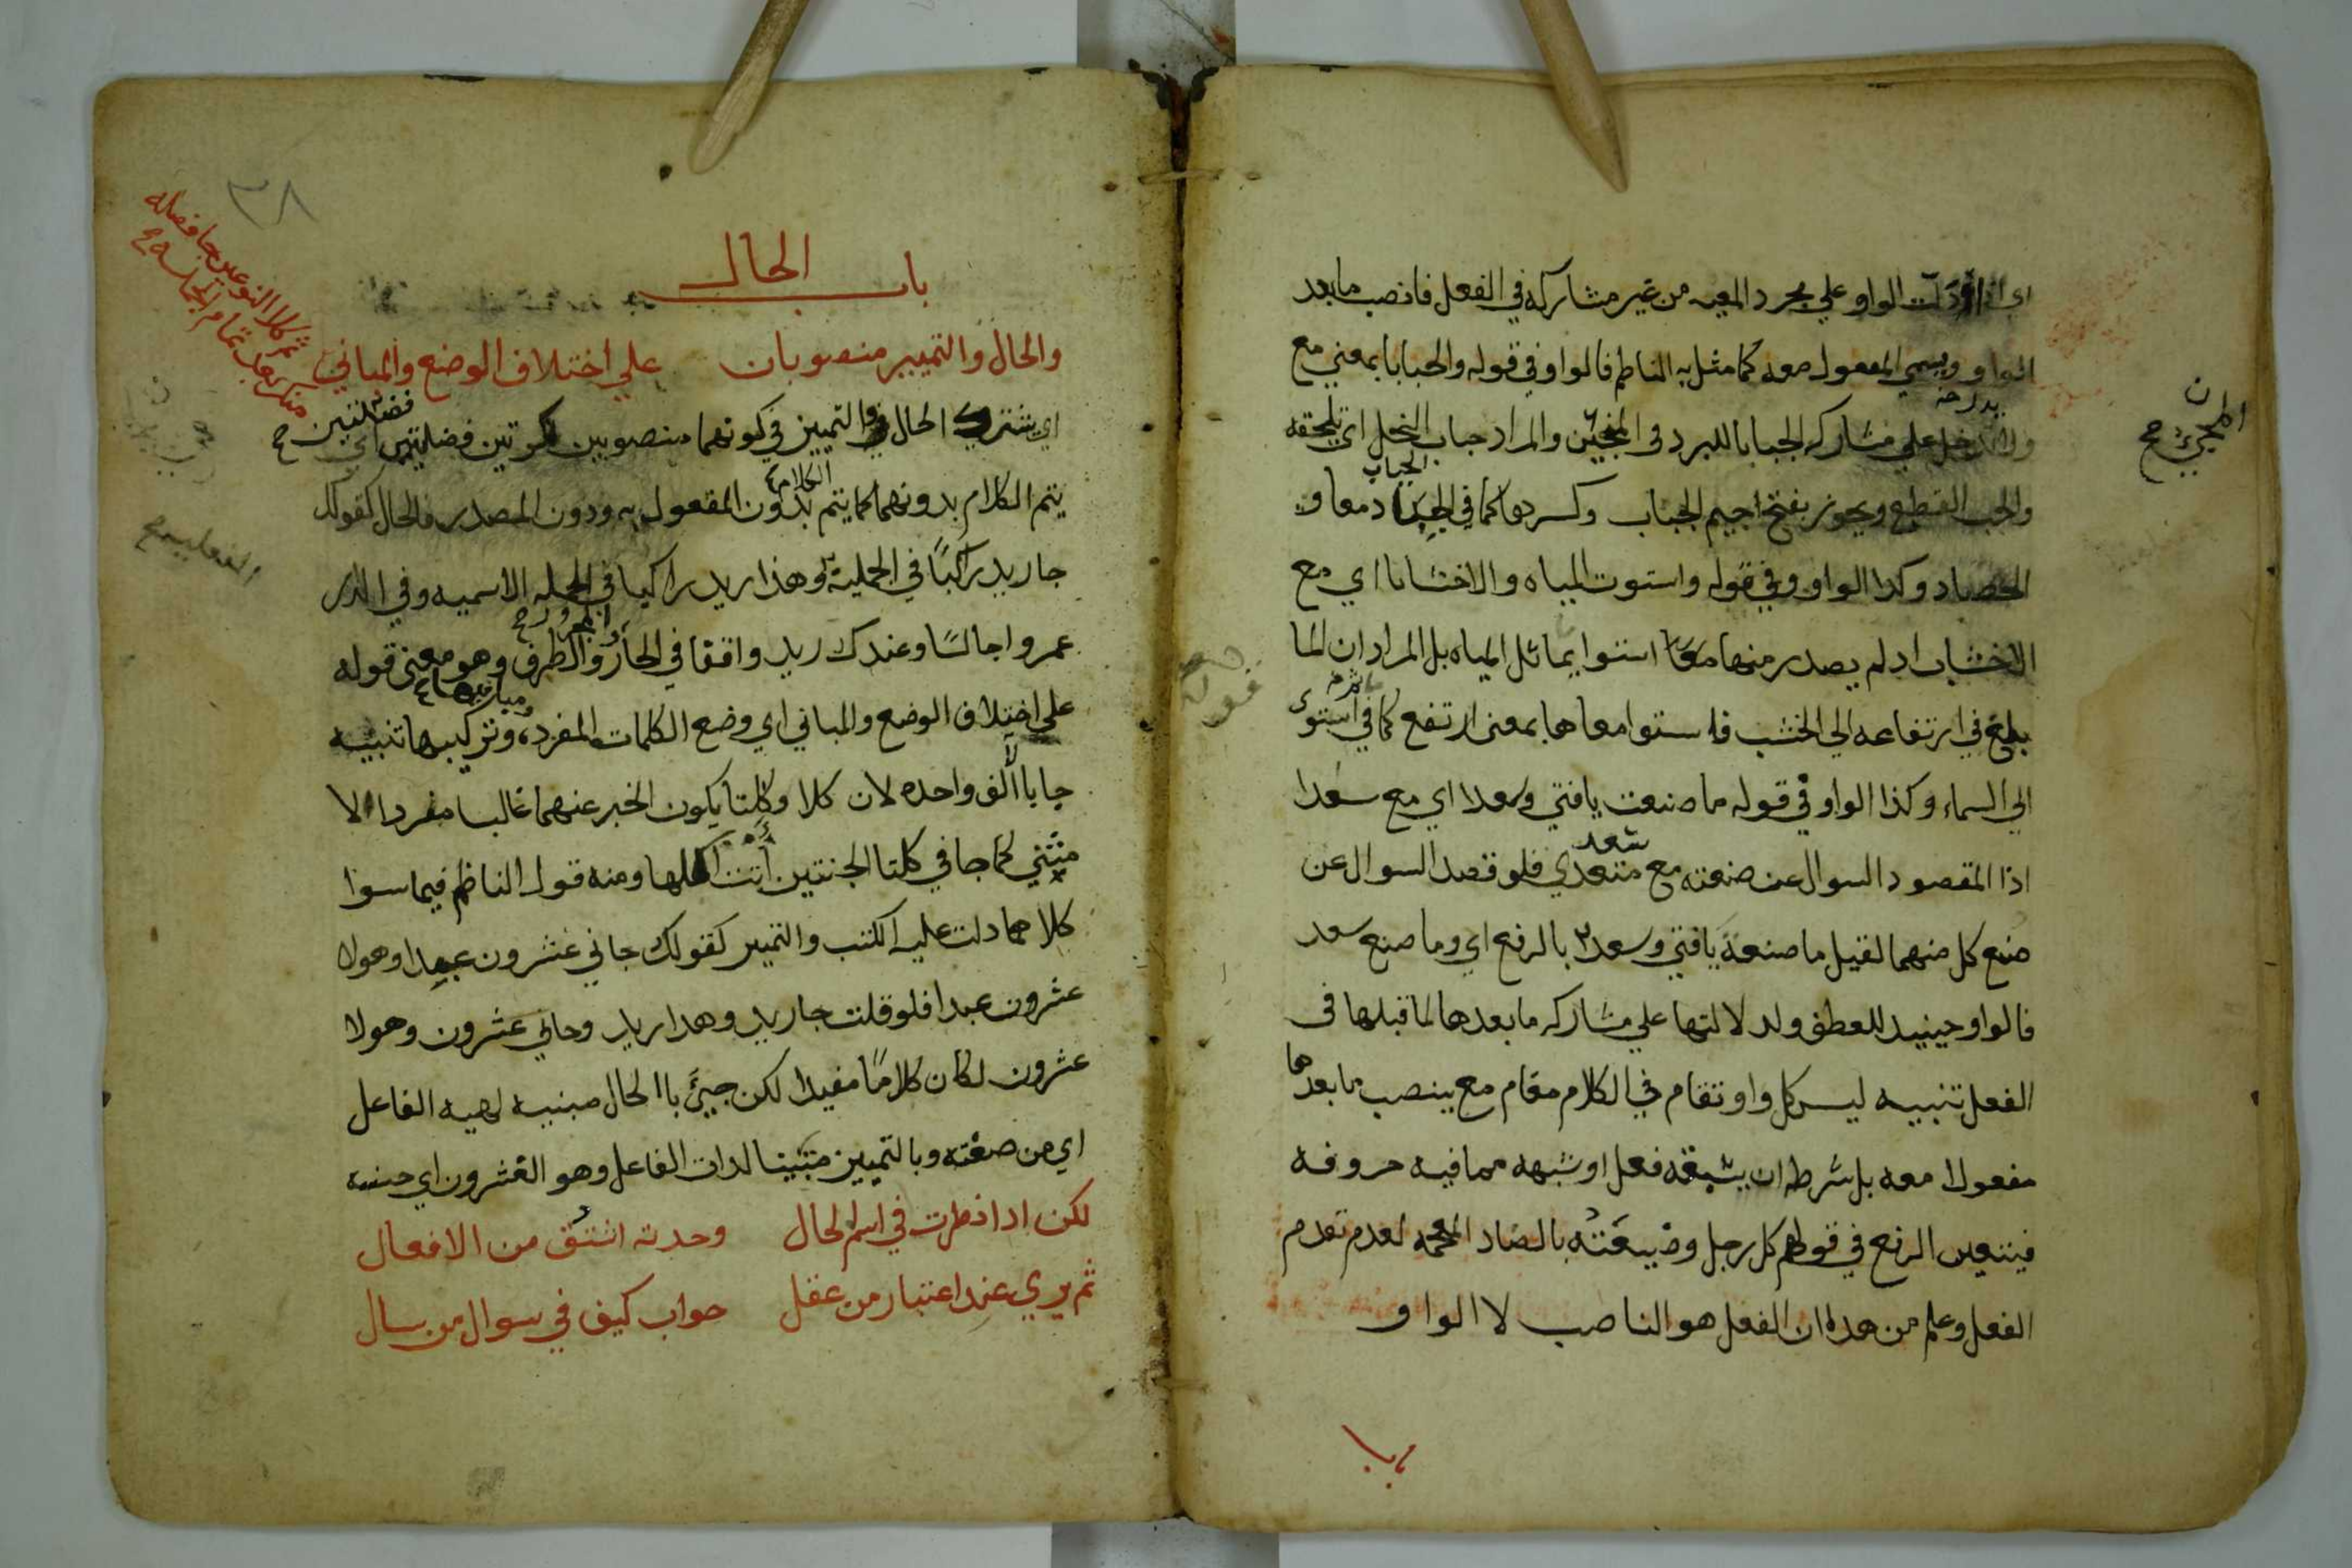 اي اذا دلت الواو علي مجرد المعيه من غير مشاركه في الفعل فانصب مابعد
الواو ويسمي المفعول معه كما مثل به الناظم فالواو في قوله والجبابا بمعني مع
علي مشاركه الجبابا للبرد في المجيئ والمراد جباب النخل اي تلحقه
والجب القطع ويجوز بفتح اجيم الجباب وكسرها كما في
الحصاد وكذا الواو وفي قوله واستوت المياه والاخشابا اي مع
الاخشاب اد لم يصدر منها معا استوا يماثل المياه بل المراد ان الما
بلغ في ارتفاعه الي الخشب فاستوا معاها بمعنى ارتفع كما في استوى
الي السماء وكذا الواو في قوله ما صنعت يافتي وسعدا اي مع سعدا
سعد
اذا المقصود السوال عن صنعته مع متعدي فلو قصد السوال عن
صنع كل منهما لقيل ما صنعة يافتي وسعد بالرفع اي وما صنع سعد
فالواو حينيد للعطف ولد لالتها علي مشاركه مابعدها لما قبلها في
الفعل تنبيه ليس كل واو تقام في الكلام مقام مع ينصب ما بعدها
مفعولا معه بل شرطه ان يسبقه فعل او شبهه مما فيه حروفه
فيتعين الرفع في قولهم كل رجل وضيعته بالضاد المعجمه لعدم تقدم
الفعل وعلم من هدا ان الفعل هو الناصب لا الواو
باب
٣٨
باب الحال
والحال والتمييز منصوبان علي اختلاف الوضع والمباني
ثم كلا النوعين جا فضله
منكر بعد تمام الجملة
اي يشترك الحال والتمييز في كونهما منصوبين نكرتين فضليتين اي
فضلتين صح
يتم الكلام بدونهما كما يتم بدون المفعول به ودون المصدر فالحال كقولك
الكلام
الفعليه صح
جا ريد راكبًا في الجملية وهذا ريد راكبا في الجمله الاسميه وفي الدار
المجرور صح
عمرو اجالسًا وعندك ريد واقفا في الجار والظرف وهو معنى قوله
ومبانيها
علي اختلاف الوضع والمباني اي وضع الكلمات المفرده وتركيبها تنبيه
جا باالف واحده لان كلا وكلتا يكون الخبر عنهما غالبا مفردا لا
مثني كما جا في كلتا الجنتين أتت اكلها ومنه قول الناظم فيما سوا
كلا هما دلت عليه الكتب والتميير كقولك جاني عشرون عبدا وهولا
عشرون عبدا فلو قلت جا ريد وهدا ريد وجاني عشرون وهولا
عشرون لكان كلامًا مفيدا لكن جيئ باالحال مبنيه لهيه الفاعل
اي من صفته وبالتمييز مبينا لدات الفاعل وهو العشرون اي جنسه
لكن ادا نظرت في اسم الحال وجدته اشتق من الافعال
ثم يري عند اعتبار من عقل جواب كيف في سوال من سال